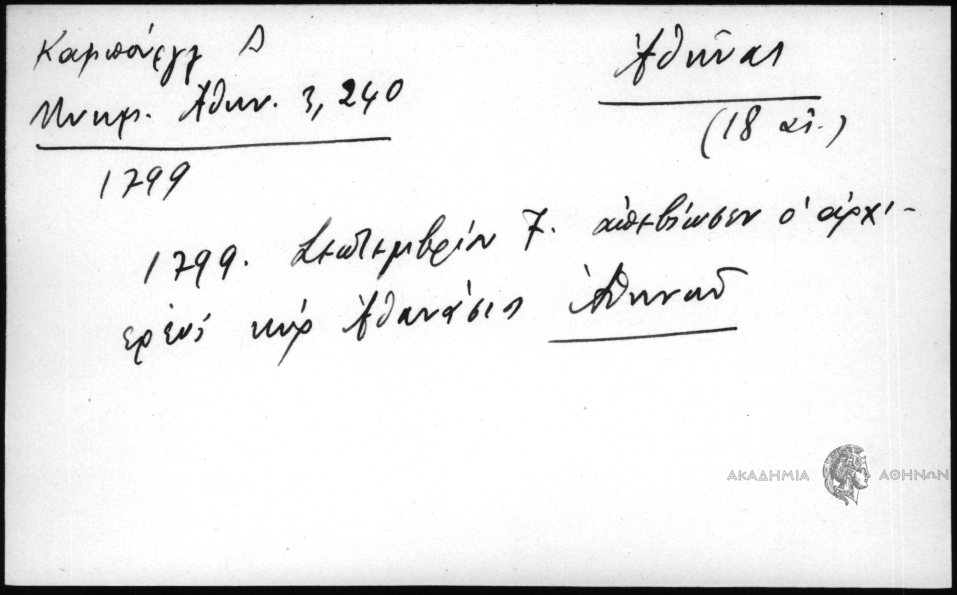 Καμπούρογλ Δ
Μνημ. Ἀθην. 3, 240
1799
Ἀθήνας
(18 αἰ.)
1799. Σεπτεμβρίου 7. ἀπεβίωσεν ὁ ἀρχι-
ερεὺς κὺρ Ἀθανάσιος Ἀθηνῶν
ΑΚΑΔΗΜΙΑ ΑΘΗΝΩΝ